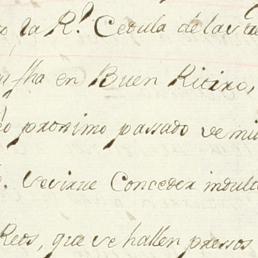 o, la R.ˡ Cedula de las
fha en Buen Retiro,
proximo passado se mi
se sirve Conceder indult
Reos, que se hallen pressos